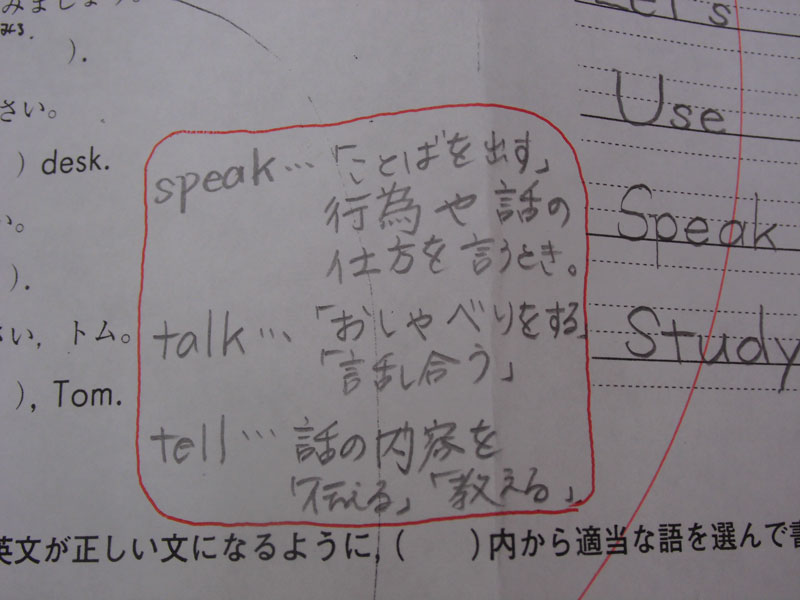 みましょう。
).
さい。
) desk.
い。
).
さい, トム。
), Tom.
speak… 「ことばを出す」
行為や話の
仕方を言うとき。
talk… 「おしゃべりをする」
「話し合う」
tell… 話の内容を
「伝える」「教える」.
英文が正しい文になるように, ( )内から適当な語を選んで書
Let's
Use
Speak
Study